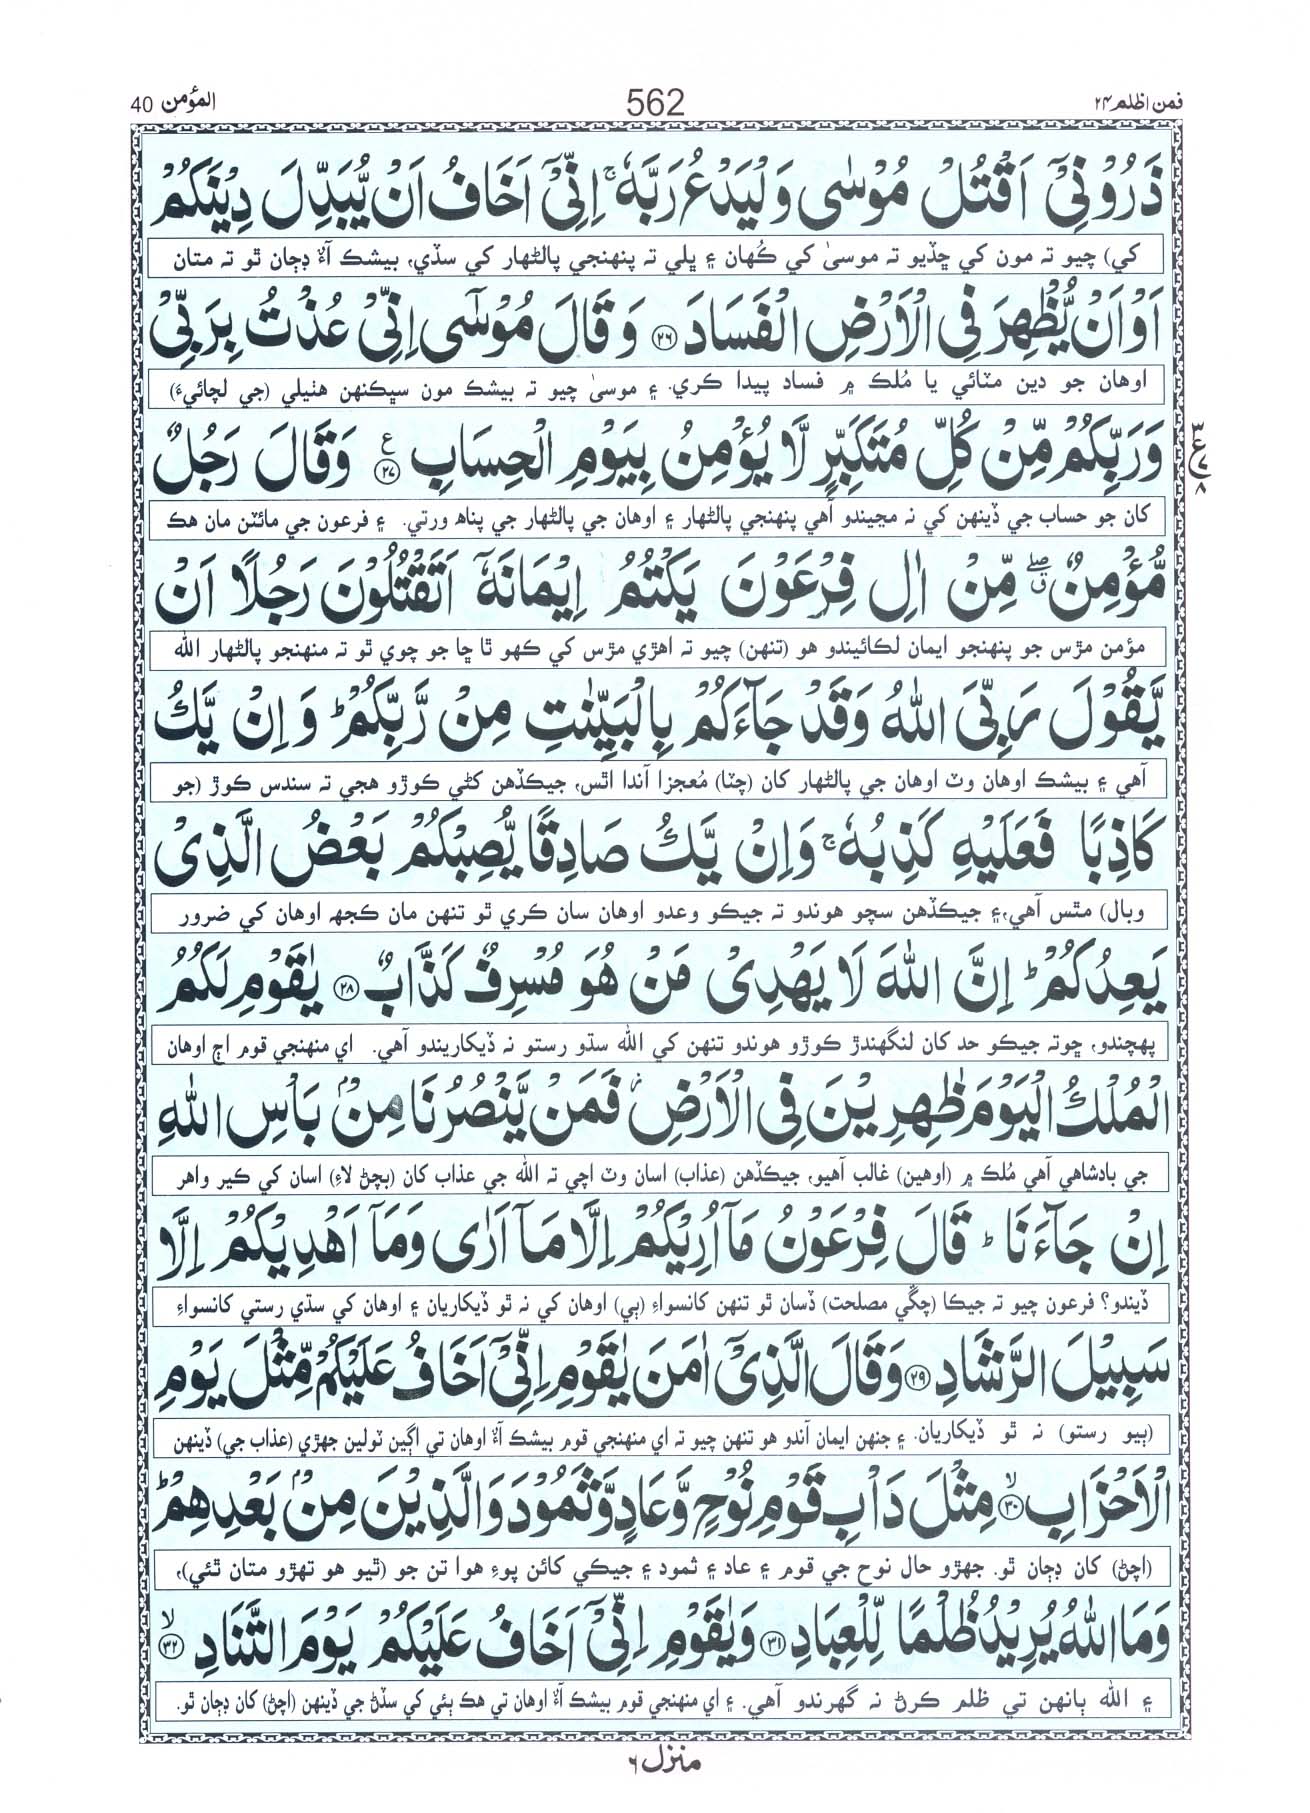 فمن اظلم ۲۴
562
المؤمن 40
ذَرُوْنِیْۤ اَقْتُلْ مُوْسٰی وَلْیَدْعُ رَبَّهٗ ۚ اِنِّیْۤ اَخَافُ اَنْ یُّبَدِّلَ دِیْنَكُمْ
كي) چيو تہ مون کي ڇڏيو تہ موسيٰ کي ڪُھان ۽ ڀلي تہ پنھنجي پالڻھار کي سڏي، بيشڪ آءٌ ڊڄان ٿو تہ متان
اَوْ اَنْ یُّظْهِرَ فِی الْاَرْضِ الْفَسَادَ ﴿۲۶﴾ وَ قَالَ مُوْسٰۤی اِنِّیْ عُذْتُ بِرَبِّیْ
اوھان جو دين مٽائي يا مُلڪ ۾ فساد پيدا ڪري. ۽ موسيٰ چيو تہ بيشڪ مون سڀڪنھن ھٺيلي (جي لڇائيءَ)
وَرَبِّكُمْ مِّنْ كُلِّ مُتَكَبِّرٍ لَّا یُؤْمِنُ بِیَوْمِ الْحِسَابِ ﴿۲۷﴾ ع وَقَالَ رَجُلٌ
کان جو حساب جي ڏينھن کي نہ مڃيندو آھي پنھنجي پالڻھار ۽ اوھان جي پالڻھار جي پناھ ورتي. ۽ فرعون جي مائٽن مان ھڪ
مُّؤْمِنٌ ۖ مِّنْ اٰلِ فِرْعَوْنَ یَكْتُمُ اِیْمَانَهٗۤ اَتَقْتُلُوْنَ رَجُلًا اَنْ
مؤمن مڙس جو پنھنجو ايمان لڪائيندو ھو (تنھن) چيو تہ اھڙي مڙس کي ڪھو ٿا ڇا جو چوي ٿو تہ منھنجو پالڻھار الله
یَّقُوْلَ رَبِّیَ اللّٰهُ وَقَدْ جَآءَكُمْ بِالْبَیِّنٰتِ مِنْ رَّبِّكُمْ ؕ وَ اِنْ یَّكُ
آھي ۽ بيشڪ اوھان وٽ اوھان جي پالڻھار کان (چٽا) مُعجزا آندا اٿس، جيڪڏھن کڻي ڪوڙو ھجي تہ سندس ڪوڙ (جو
كَاذِبًا فَعَلَیْهِ كَذِبُهٗ ۚ وَاِنْ یَّكُ صَادِقًا یُّصِبْكُمْ بَعْضُ الَّذِیْ
وبال) مٿس آھي، ۽ جيڪڏھن سچو ھوندو تہ جيڪو وعدو اوھان سان ڪري ٿو تنھن مان ڪجھہ اوھان کي ضرور
یَعِدُكُمْ ؕ اِنَّ اللّٰهَ لَا یَهْدِیْ مَنْ هُوَ مُسْرِفٌ كَذَّابٌ ﴿۲۸﴾ یٰقَوْمِ لَكُمُ
پھچندو، ڇوتہ جيڪو حد کان لنگھندڙ ڪوڙو ھوندو تنھن کي الله سڌو رستو نہ ڏيکاريندو آھي. اي منھنجي قوم اڄ اوھان
الْمُلْكُ الْیَوْمَ ظٰهِرِیْنَ فِی الْاَرْضِ ؗ فَمَنْ یَّنْصُرُنَا مِنْۢ بَاْسِ اللّٰهِ
جي بادشاھي آھي مُلڪ ۾ (اوھين) غالب آھيو، جيڪڏھن (عذاب) اسان وٽ اچي تہ الله جي عذاب کان (بچڻ لاءِ) اسان کي ڪير واھر
اِنْ جَآءَنَا ؕ قَالَ فِرْعَوْنُ مَاۤ اُرِیْكُمْ اِلَّا مَاۤ اَرٰی وَمَاۤ اَهْدِیْكُمْ اِلَّا
ڏيندو؟ فرعون چيو تہ جيڪا (چڱي مصلحت) ڏسان ٿو تنھن کانسواءِ (ٻي) اوھان کي نہ ٿو ڏيکاريان ۽ اوھان کي سڌي رستي کانسواءِ
سَبِیْلَ الرَّشَادِ ﴿۲۹﴾ وَقَالَ الَّذِیْۤ اٰمَنَ یٰقَوْمِ اِنِّیْۤ اَخَافُ عَلَیْكُمْ مِّثْلَ یَوْمِ
(ٻيو رستو) نہ ٿو ڏيکاريان. ۽ جنھن ايمان آندو ھو تنھن چيو تہ اي منھنجي قوم بيشڪ آءٌ اوھان تي اڳين ٽولين جھڙي (عذاب جي) ڏينھن
الْاَحْزَابِ ﴿۳۰﴾ ۙ مِثْلَ دَاْبِ قَوْمِ نُوْحٍ وَّعَادٍ وَّثَمُوْدَ وَالَّذِیْنَ مِنْۢ بَعْدِهِمْ ؕ
(اچڻ) کان ڊڄان ٿو. جھڙو حال نوح جي قوم ۽ عاد ۽ ثمود ۽ جيڪي کائن پوءِ ھوا تن جو (ٿيو ھو تھڙو متان ٿئي)،
وَمَا اللّٰهُ یُرِیْدُ ظُلْمًا لِّلْعِبَادِ ﴿۳۱﴾ وَیٰقَوْمِ اِنِّیْۤ اَخَافُ عَلَیْكُمْ یَوْمَ التَّنَادِ ﴿۳۲﴾ ۙ
۽ الله ٻانھن تي ظلم ڪرڻ نہ گھرندو آھي. ۽ اي منھنجي قوم بيشڪ آءٌ اوھان تي ھڪ ٻئي کي سڏڻ جي ڏينھن (اچڻ) کان ڊڄان ٿو.
منزل ۶